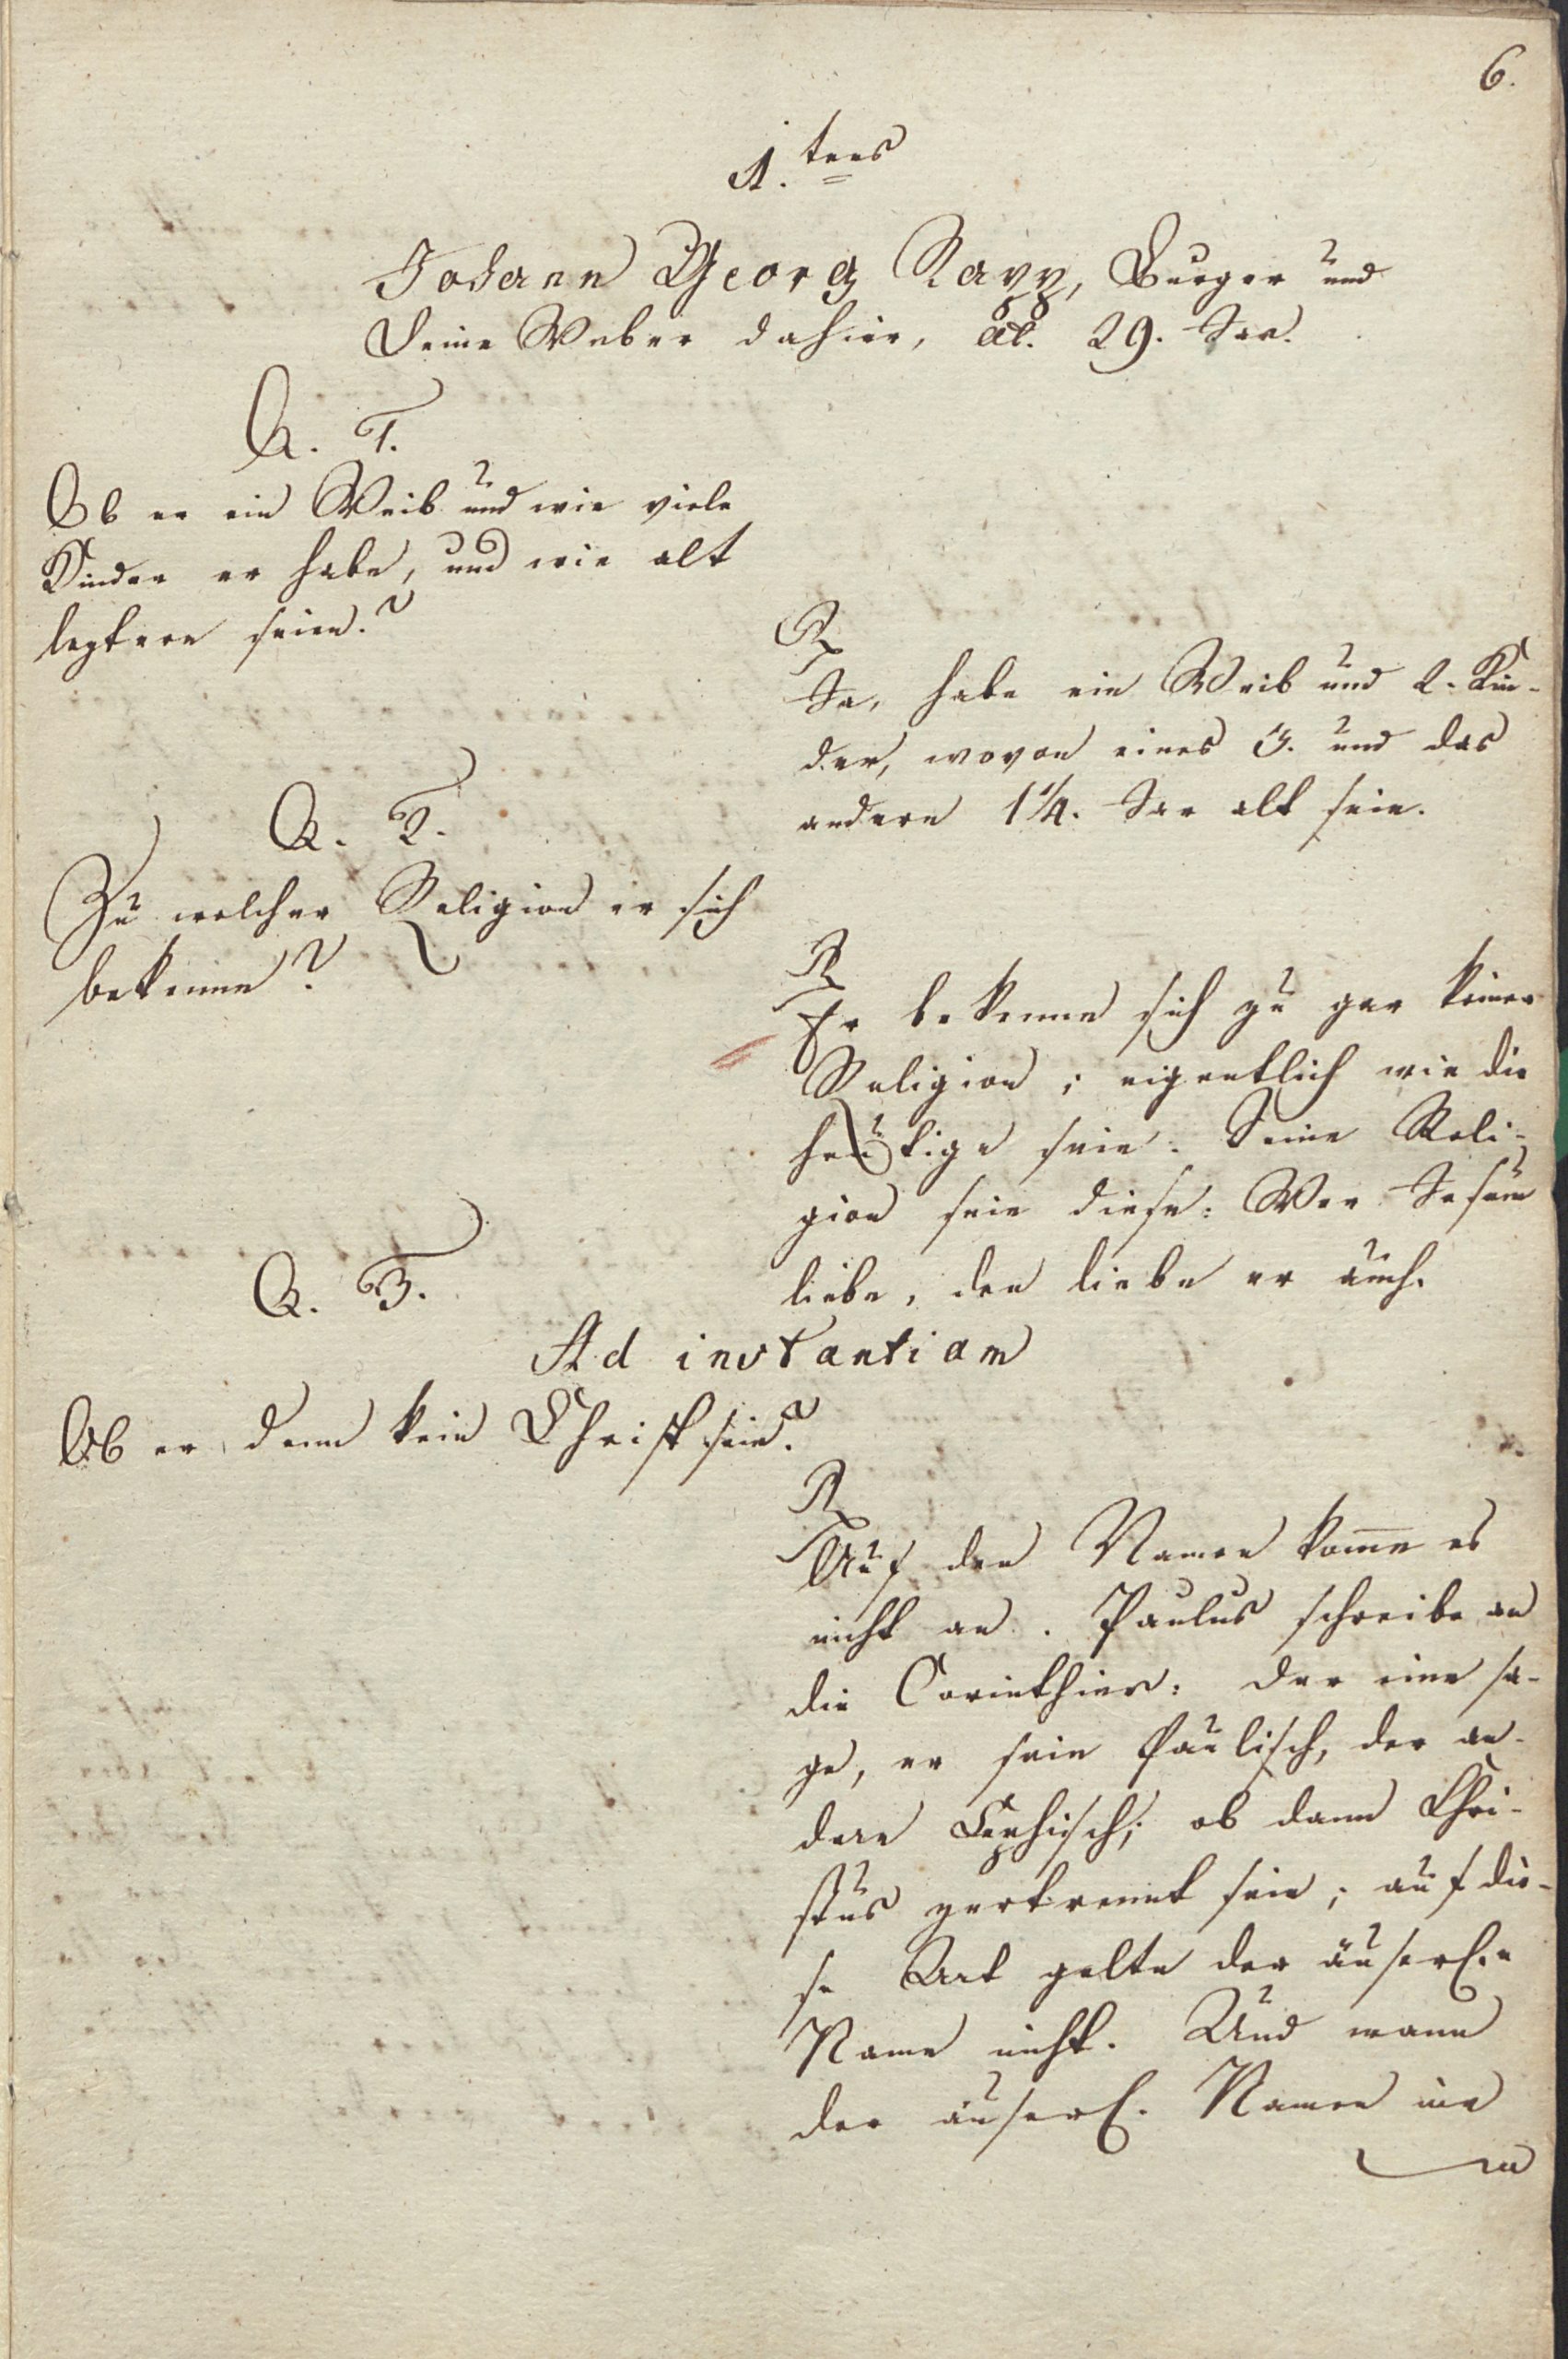 6.
1.tens
Johann Georg Rapp, Burger und
Leine Weber dahier, æt. 29. Jar.
Q. 1.
Ob er ein Weib und wie viele
Kinder er habe, und wie alt
leztere seien?
R
Ja, habe ein Weib und 2. Kin-
der, wovon eines 3. und das
andere 1 1/4. Jar alt seie.
Q. 2.
Zu welcher Religion er sich
bekenne?
R
Er bekenne sich zu gar keiner
Religion; eigentlich wie die
heutige seie. Seine Reli-
gion seie diese: Wer Jesum
liebe, den liebe er auch.
Q. 3.
Ad instantiam
Ob er denn kein Christ seie?
R
Auf den Namen komme es
nicht an. Paulus schreibe an
die Corinthier: der eine sa-
ge, er seie Paulisch, der an-
dere Cephisch; ob dann Chri-
stus zertrennt seie; auf die-
se Art gelte der äuserl.e
Name nicht. Und wann
der äuserl. Namen